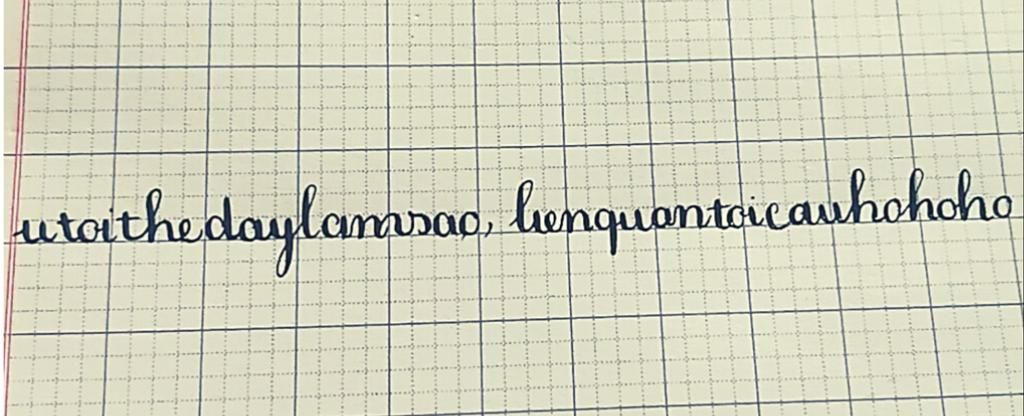 utoithedaylamsao, lienquantoicauhohoho